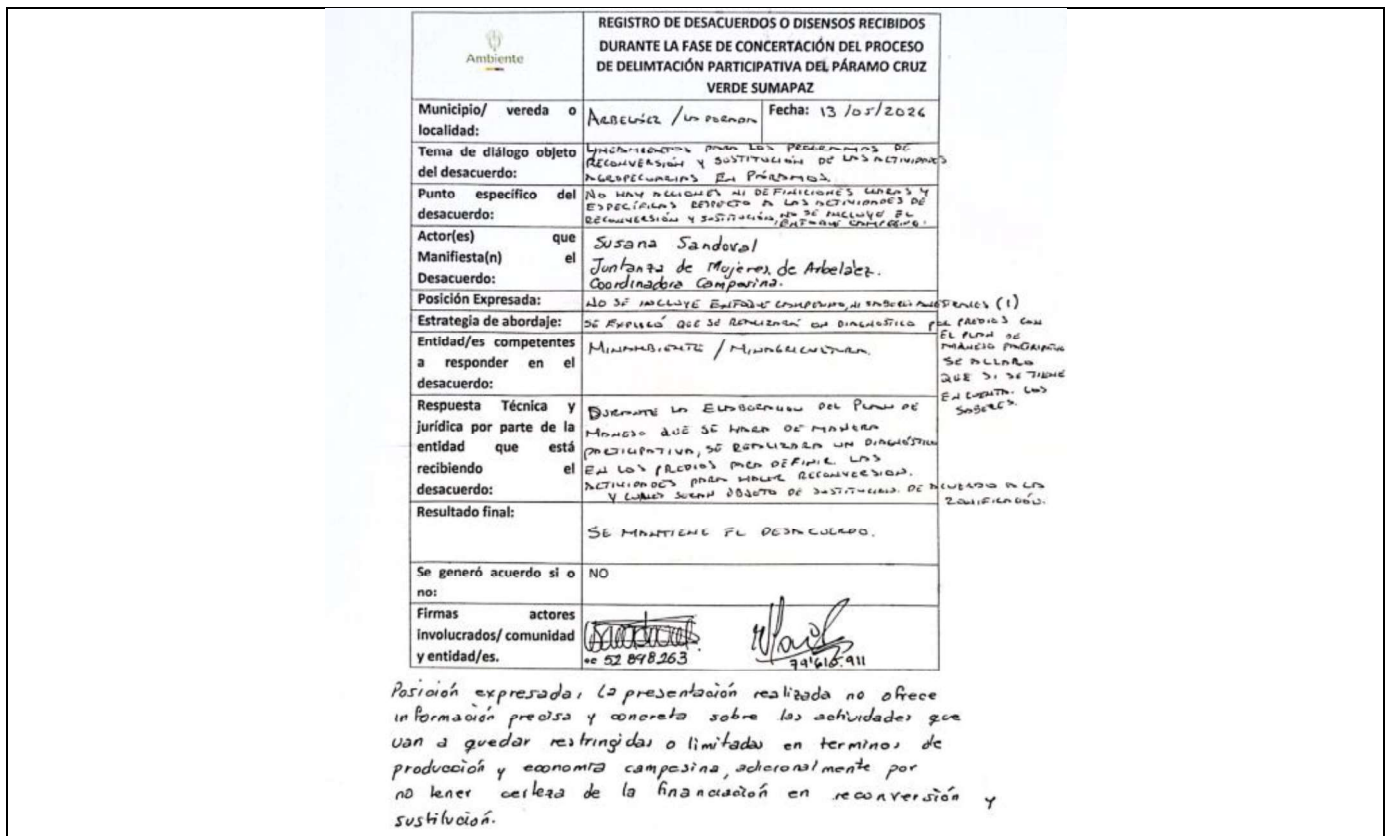 Ambiente
REGISTRO DE DESACUERDOS O DISENSOS RECIBIDOS
DURANTE LA FASE DE CONCERTACIÓN DEL PROCESO
DE DELIMTACIÓN PARTICIPATIVA DEL PÁRAMO CRUZ
VERDE SUMAPAZ
Municipio/ vereda o
localidad:
ARBELÁEZ /
Fecha: 13/05/2026
Tema de diálogo objeto
del desacuerdo:
LINEAMIENTOS PARA LOS PROGRAMAS DE
RECONVERSIÓN Y SUSTITUCIÓN DE LAS ACTIVIDADES
AGROPECUARIAS EN PÁRAMOS.
Punto específico del
desacuerdo:
NO HAY ACCIONES NI DEFINICIONES CLARAS Y
ESPECÍFICAS RESPECTO A LAS ACTIVIDADES DE
RECONVERSIÓN Y SUSTITUCIÓN, NO SE INCLUYE EL
ENFOQUE CAMPESINO.
Actor(es) que
Manifiesta(n) el
Desacuerdo:
Susana Sandoval
Juntanza de Mujeres de Arbeláez.
Coordinadora Campesina.
Posición Expresada:
NO SE INCLUYE ENFOQUE CAMPESINO, NI SABERES ANCESTRALES (1)
Estrategia de abordaje:
SE EXPLICÓ QUE SE REALIZARÁ UN DIAGNOSTICO POR PREDIOS CON
EL PLAN DE
MANEJO PARTICIPATIVO
SE ACLARO
QUE SI SE TIENE
EN CUENTA. LOS
SABERES.
Entidad/es competentes
a responder en el
desacuerdo:
MINAMBIENTE / MINAGRICULTURA.
Respuesta Técnica y
jurídica por parte de la
entidad que está
recibiendo el
desacuerdo:
DURANTE LA ELABORACION DEL PLAN DE
MANEJO QUE SE HARA DE MANERA
PARTICIPATIVA, SE REALIZARA UN DIAGNÓSTICO
EN LOS PREDIOS PARA DEFINIR LAS
ACTIVIDADES PARA HACER RECONVERSION.
Y CUALES SERAN OBJETO DE SUSTITUCION. DE ACUERDO A LA
ZONIFICACIÓN.
Resultado final:
SE MANTIENE EL DESACUERDO.
Se generó acuerdo si o
no:
NO
Firmas actores
involucrados/ comunidad
y entidad/es.
cc 52 898.263
79'615.911
Posición expresada, La presentación realizada no ofrece
información precisa y concreta sobre las actividades que
van a quedar restringidas o limitadas en terminos de
producción y economía campesina, adicionalmente por
no tener certeza de la financiación en reconversión y
sustitución.